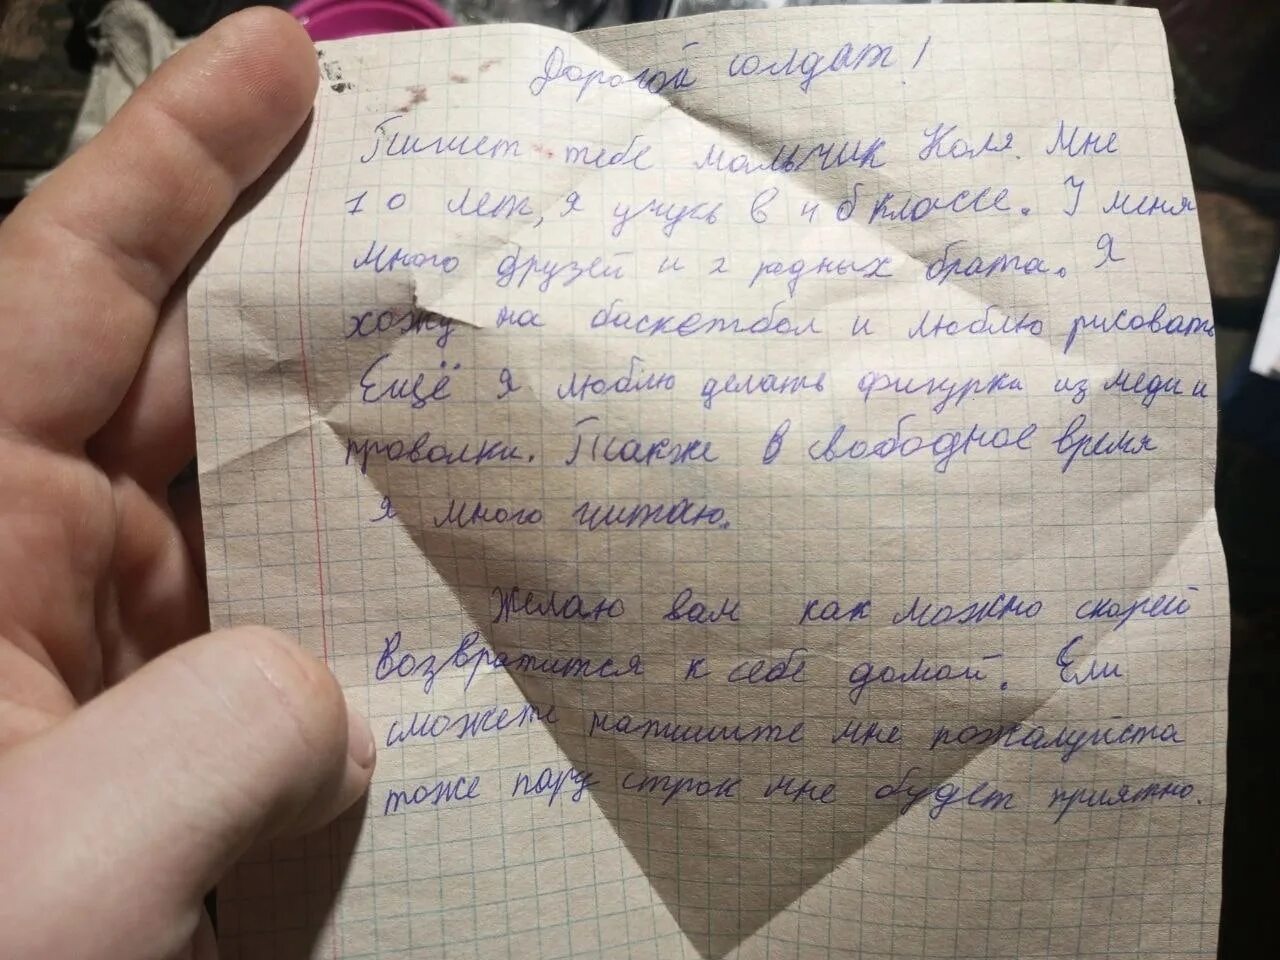 Дорогой солдат!
Пишет тебе мальчик Коля. Мне
10 лет, я учусь в 4 б классе. У меня
много друзей и 2 родных брата. Я
хожу на баскетбол и люблю рисовать
Ещё я люблю делать фигурки из меди и
проволки. Также в свободное время
я много читаю.
Желаю вам как можно скорей
возвратится к себе домой. Ели
сможете напишите мне пожалуйста
тоже пару строк мне будет приятно.